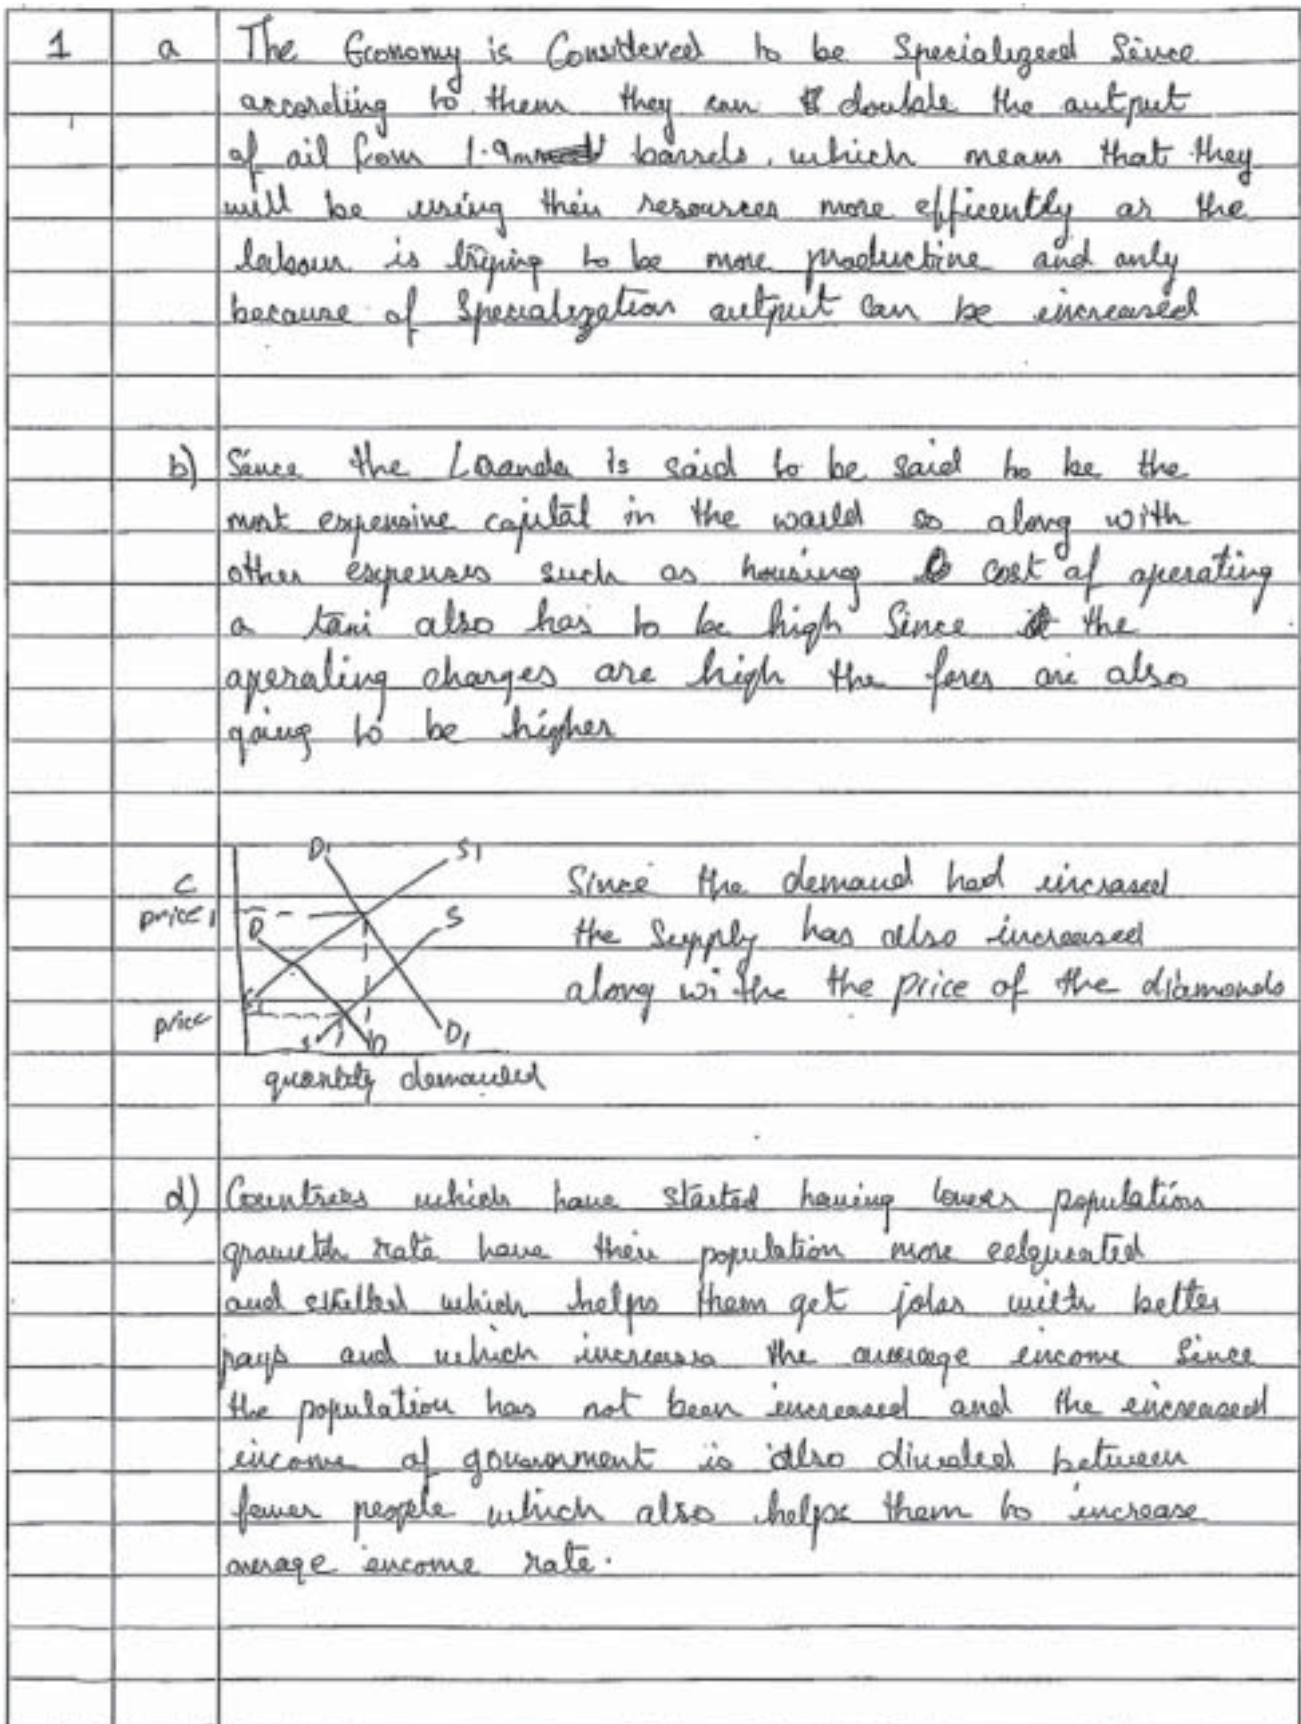 1 a The Economy is Considered to be Specialized Since
according to them they can double the output
of oil from 1.9m barrels, which means that they
will be using their resources more efficently as the
labour is trying to be more productive and only
because of Specialization output can be increased
b) Since the Luanda is said to be said to be the
most expensive capital in the world so along with
other expenses such as housing cost of operating
a taxi also has to be high Since the
operating charges are high the fares are also
going to be higher
c
D1 S1
price1
D S
S1
price
S D D1
quantity demanded
Since the demand had incrased
the Supply has also increased
along withe the price of the diamonds
d) Countries which have started having lower population
growth rate have their population more
and skilled which helps them get jobs with better
pays and which increases the average income Since
the population has not been increased and the increased
income of government is also divided between
fewer people which also helps them to increase
average income rate.